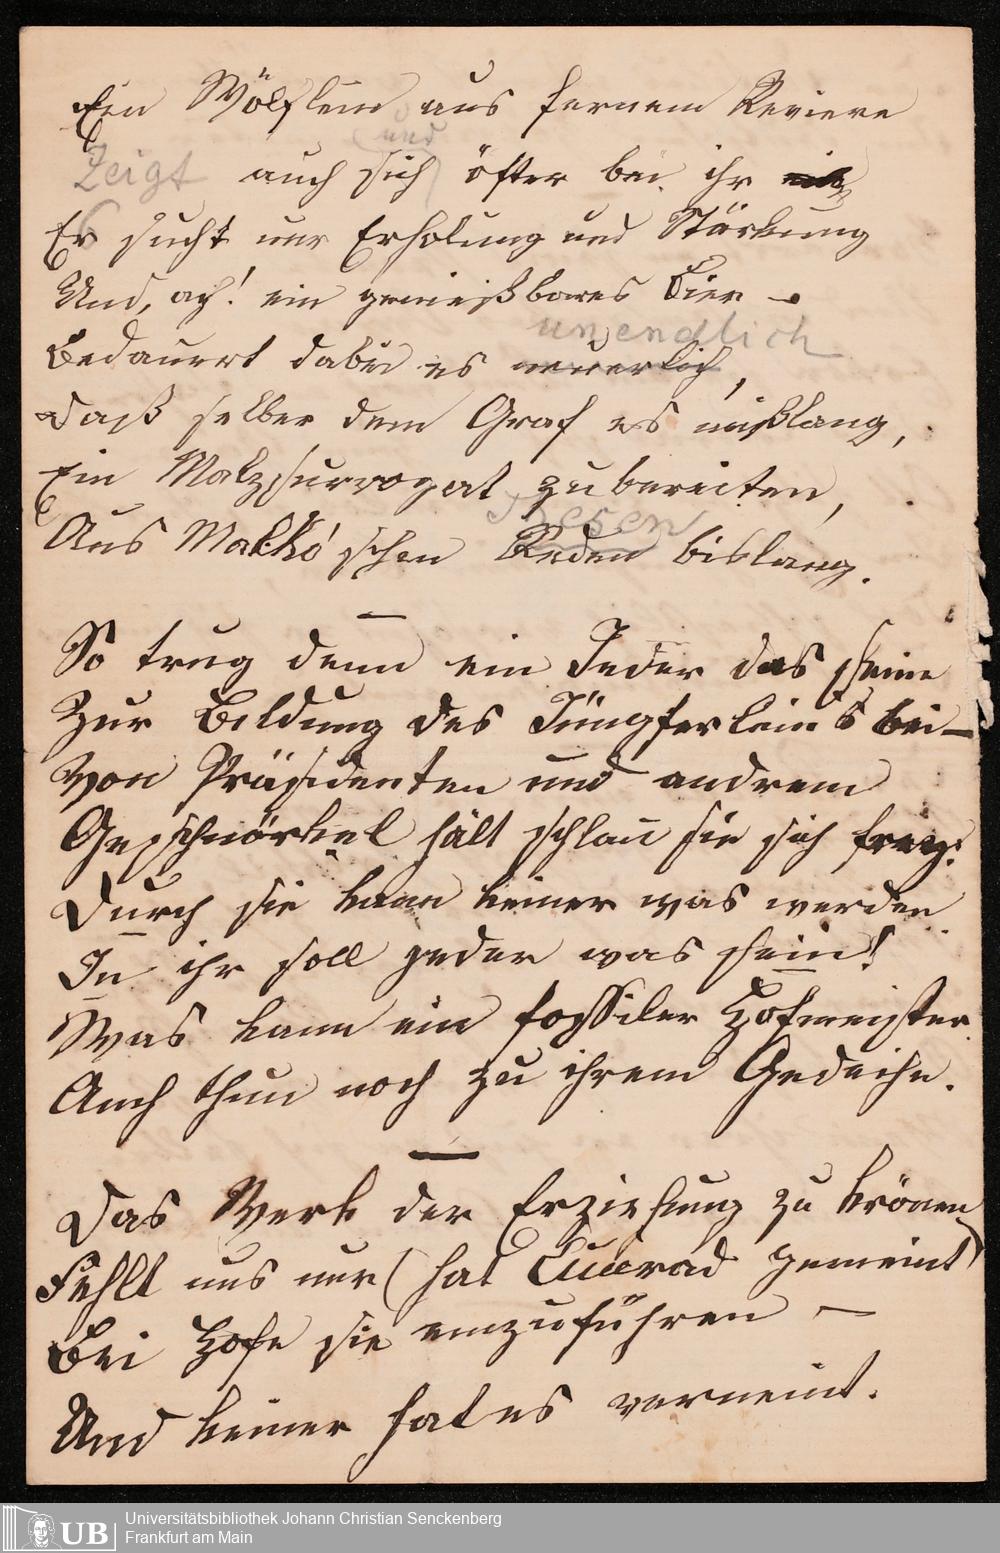 Ein Wölflein aus fernem Reviere
und
Zeigt auch sich öfter bei ihr
Er sucht nur Erholung und Stärkung
Und, ach! ein genießbares Bier –
unendlich
Bedauert dabei es neuerlich,
Daß selber dem Graf es mißlang,
Ein Malzsurrogat zu bereiten,
Thesen
Aus Makkó'schen Reden bislang.
So trug denn ein Jeder das seine
Zur Bildung des Jüngferlein's bei –
Von Präsidenten und andrem
Geschnörkel hält schlau sie sich frey:
Durch sie kann keiner was werden
In ihr soll jeder was sein!
Was kann ein fossiler Hofmeister
Auch thun noch zu ihrem Gedeihn.
Das Werk der Erziehung zu krönen
Fehlt uns nur (hat Cunrad gemeint)
Bei Hofe sie einzuführen –
Und keiner hat es verneint.
UB
Universitätsbibliothek Johann Christian Senckenberg
Frankfurt am Main